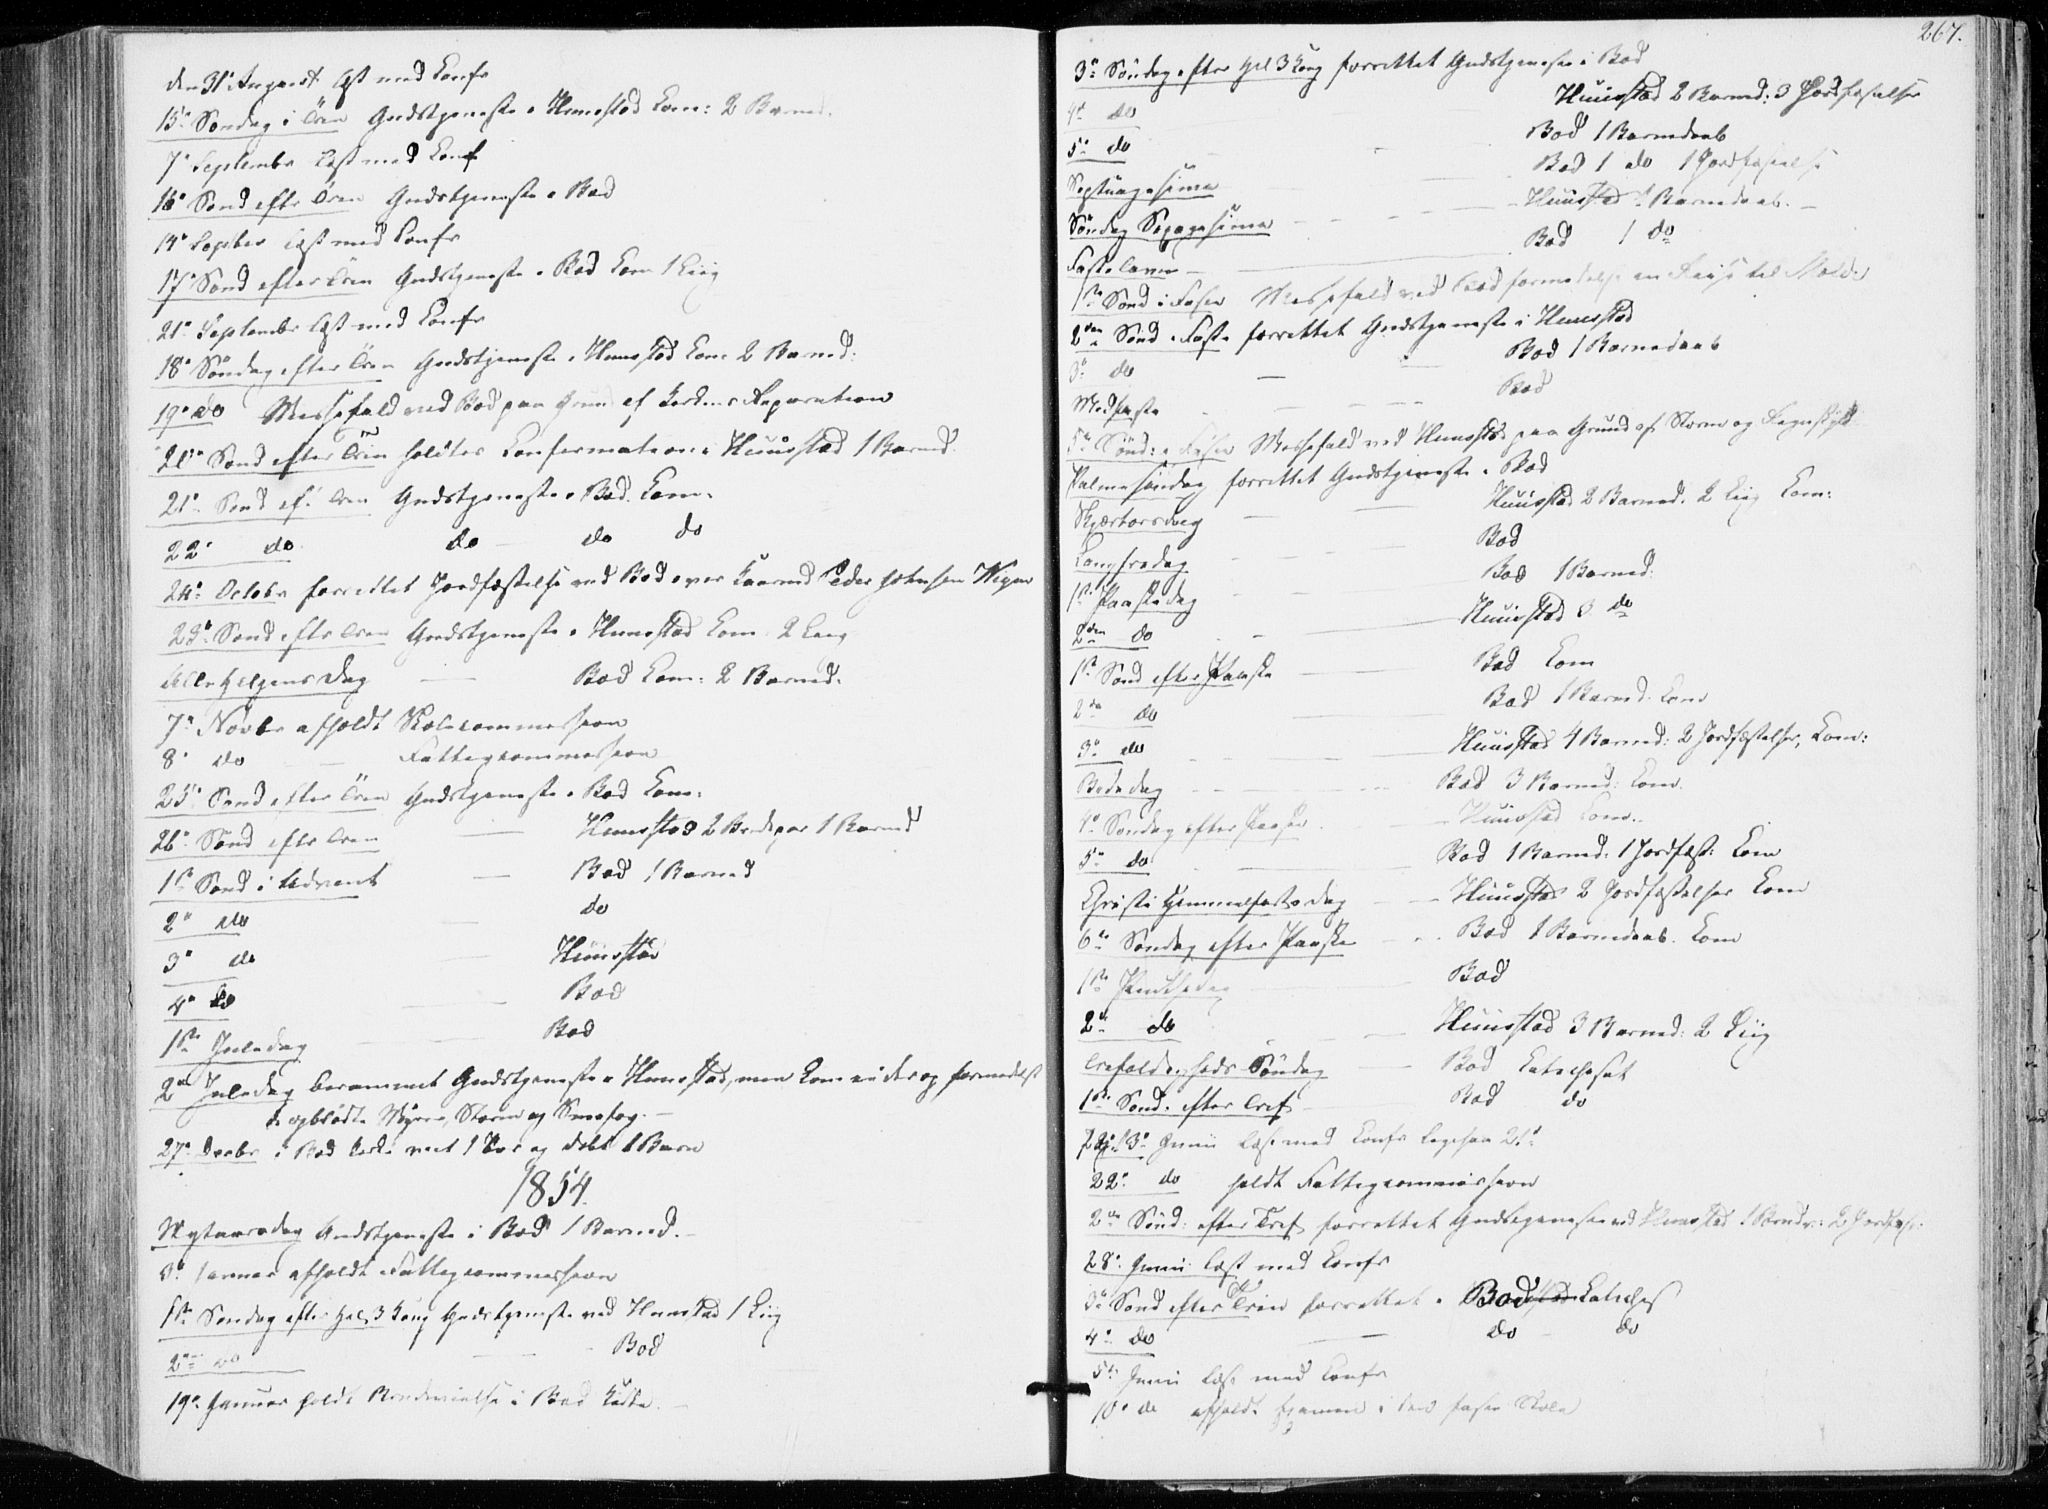 den 31te August Læst med Conf.
15de Søndag i Trin Gudstjeneste i Huustad Com: 2 Barned.
7de September Læst med Conf
16de Sønd efter Trin Gudstjeneste i Bod
14de Septbr Læst med Conf.
17de Sønd efter Trin Gudstjeneste i Bod Com 1 Liig
21de September Læst med Conf.
18de Søndag efter Trin Gudstjeneste i Huustad Com 2 Barned:
19de do Messefald ved Bod paa Grund af Kirkens Reparation
20de Sønd efter Trin holdtes Confirmation i Huustad 1 Barned.
21de Sønd ef. Trin Gudstjeneste i Bod. Com.
22de do do do do
24de Octobr forrettet Jordfæstelse ved Bod over Peder Johnsen
23de Sønd efter Trin Gudstjeneste i Huustad Com 2 Liig
Alle Helgens Dag — Bod Com: 2 Barned.
7de Novbr afholdt Skolecommission
8de do — Fattigcommission
25de Sønd efter Trin Gudstjeneste i Bod Com:
26de Sønd efter Trin — Huustad 2 Brudepar 1 Barned
1ste Sønd i Advent — Bod 1 Barned
2den do — do
3de do — Huustad
4de do — Bod
1ste Juledag — Bod
2den Juledag berammet Gudstjeneste i Huustad, men kom ei der og formedelst
Storm og Snefog. —
27de Decbr i Bod Kirke viet 1 Par og døbt 1 Barn
1854.
Nytaarsdag Gudstjeneste i Bod 1 Barned. —
3de Januar afholdt Fattigcommission
1ste Søndag efter Hel. 3 Kong Gudstjeneste ved Huustad 1 Liig
2den do — Bod
19de Januar holdt Brudevielse i Bod Kirke. —
267.
3de Søndag efter Hel 3 Kong forrettet Gudstjeneste i Bod
4de do Huustad 2 Barned: 3 Jordfæstelser
5te do — Bod 1 Barnedaab
Septuagesima — Bod 1 do 1 Jordfæstelse
Søndag Sexagesima — Huustad 1 Barnedaab. —
Fastelavn — Bod 1 do
1ste Sønd i Faste Messefald ved Bod formedelst en Reise til Molde
2den Sønd i Faste forrettet Gudstjeneste i Huustad
3de do — Bod 1 Barnedaab
Midfaste — Bod
5te Sønd: i Faste Messefald ved Huustad paa Grund af Storm og
Palmesøndag forrettet Gudstjeneste i Bod
Skjærtorsdag — Huustad 2 Barned. 2 Liig Com:
Langfredag — Bod
1ste Paaskedag — Bod 1 Barned.
2den do — Huustad 3 do
1ste Sønd efter Paaske — Bod Com
2den do — Bod 1 Barned. Com
3de do — Huustad 4 Barned: 2 Jordfæstelser, Com:
Bededag — Bod 3 Barned: Com.
4de Søndag efter Paaske — Huustad Com.
5te do — Bod 1 Barned: 1 Jordfæst: Com
Christi Himmelfartsdag — Huustad 2 Jordfæstelser Com
6te Søndag efter Paaske — Bod 1 Barnedaab. Com
1ste Pintsedag — Bod
2den do — Huustad 3 Barned: 2 Liig
Trefoldigheds Søndag — Bod Catechiset
1ste Sønd. efter Tref — Bod do
Junii Læst med Conf. 21de
22de do holdt Fattigcommission
2den Sønd: efter Tref forrettet Gudstjeneste ved Huustad 1 Brudv: 2 Jordfæst:
28de Junii Læst med Conf.
3de Sønd efter Trin forrettet i Bod Catechis
4de do — do do
5te Junii Læst med Conf.
10de do afholdt Examen i den faste Skole